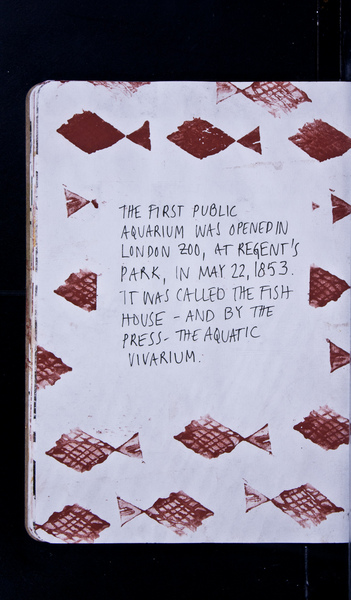 THE FIRST PUBLIC
AQUARIUM WAS OPENED IN
LONDON ZOO, AT REGENT'S
PARK, IN MAY 22, 1853.
IT WAS CALLED THE FISH
HOUSE - AND BY THE
PRESS - THE AQUATIC
VIVARIUM.